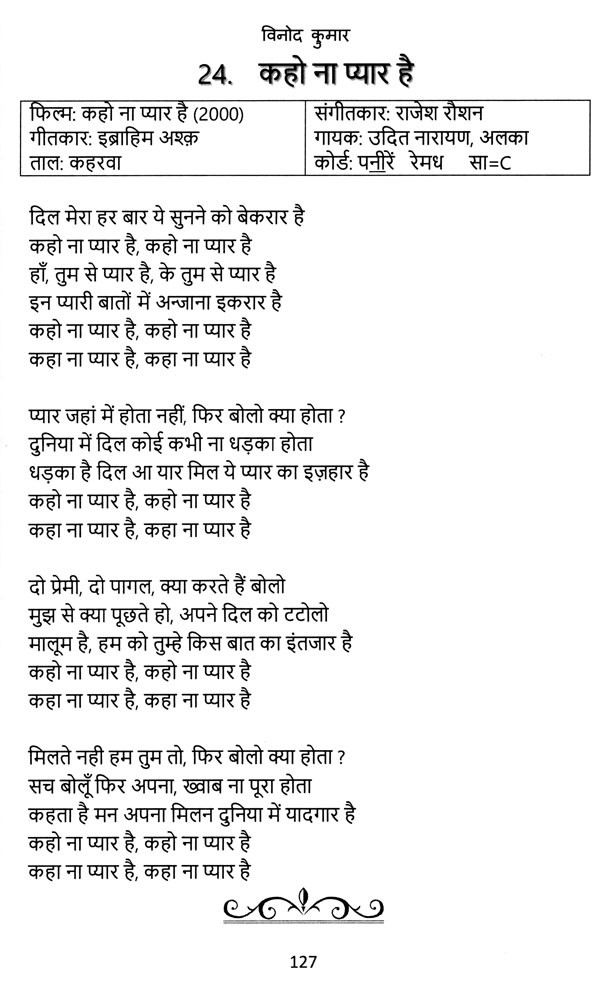 विनोद कुमार
24. कहो ना प्यार है
फिल्म: कहो ना प्यार है (2000)
संगीतकार: राजेश रौशन
गीतकार: इब्राहिम अश्क़
गायक: उदित नारायण, अलका
ताल: कहरवा
कोर्ड: पनीरें रेमध सा=C
दिल मेरा हर बार ये सुनने को बेकरार है
कहो ना प्यार है, कहो ना प्यार है
हाँ, तुम से प्यार है, के तुम से प्यार है
इन प्यारी बातों में अन्जाना इकरार है
कहो ना प्यार है, कहो ना प्यार है
कहा ना प्यार है, कहा ना प्यार है
प्यार जहां में होता नहीं, फिर बोलो क्या होता ?
दुनिया में दिल कोई कभी ना धड़का होता
धड़का है दिल आ यार मिल ये प्यार का इज़हार है
कहो ना प्यार है, कहो ना प्यार है
कहा ना प्यार है, कहा ना प्यार है
दो प्रेमी, दो पागल, क्या करते हैं बोलो
मुझ से क्या पूछते हो, अपने दिल को टटोलो
मालूम है, हम को तुम्हे किस बात का इंतजार है
कहो ना प्यार है, कहो ना प्यार है
कहा ना प्यार है, कहा ना प्यार है
मिलते नही हम तुम तो, फिर बोलो क्या होता ?
सच बोलूँ फिर अपना, ख्वाब ना पूरा होता
कहता है मन अपना मिलन दुनिया में यादगार है
कहो ना प्यार है, कहो ना प्यार है
कहा ना प्यार है, कहा ना प्यार है
127